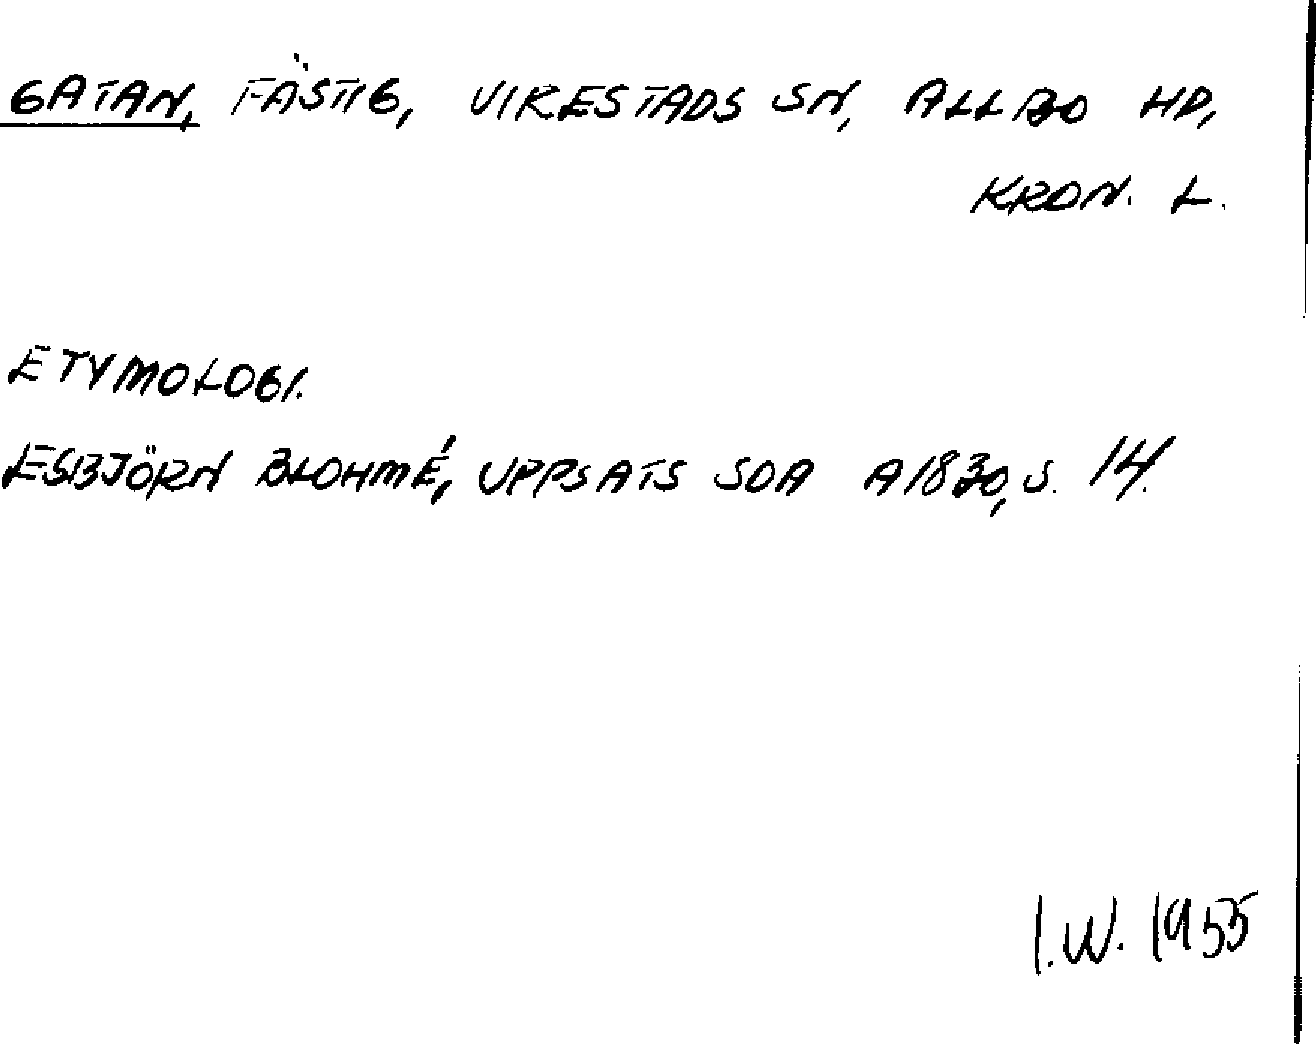 GATAN, FÄSTIG, VIRESTADS SN, ALLBO HD,
KRON. L.
ETYMOLOGI.
ESBJÖRN BLOHMÉ, UPPSATS SOA A1830, S. 14.
I.W. 1955